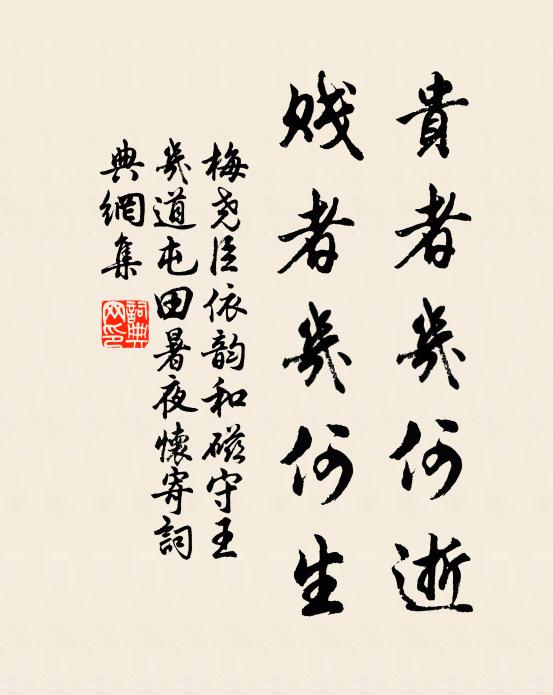 貴者幾何逝
賤者幾何生
梅堯臣依韵和磁守王
幾道屯田暑夜懷寄詞
典網集
詞典網印